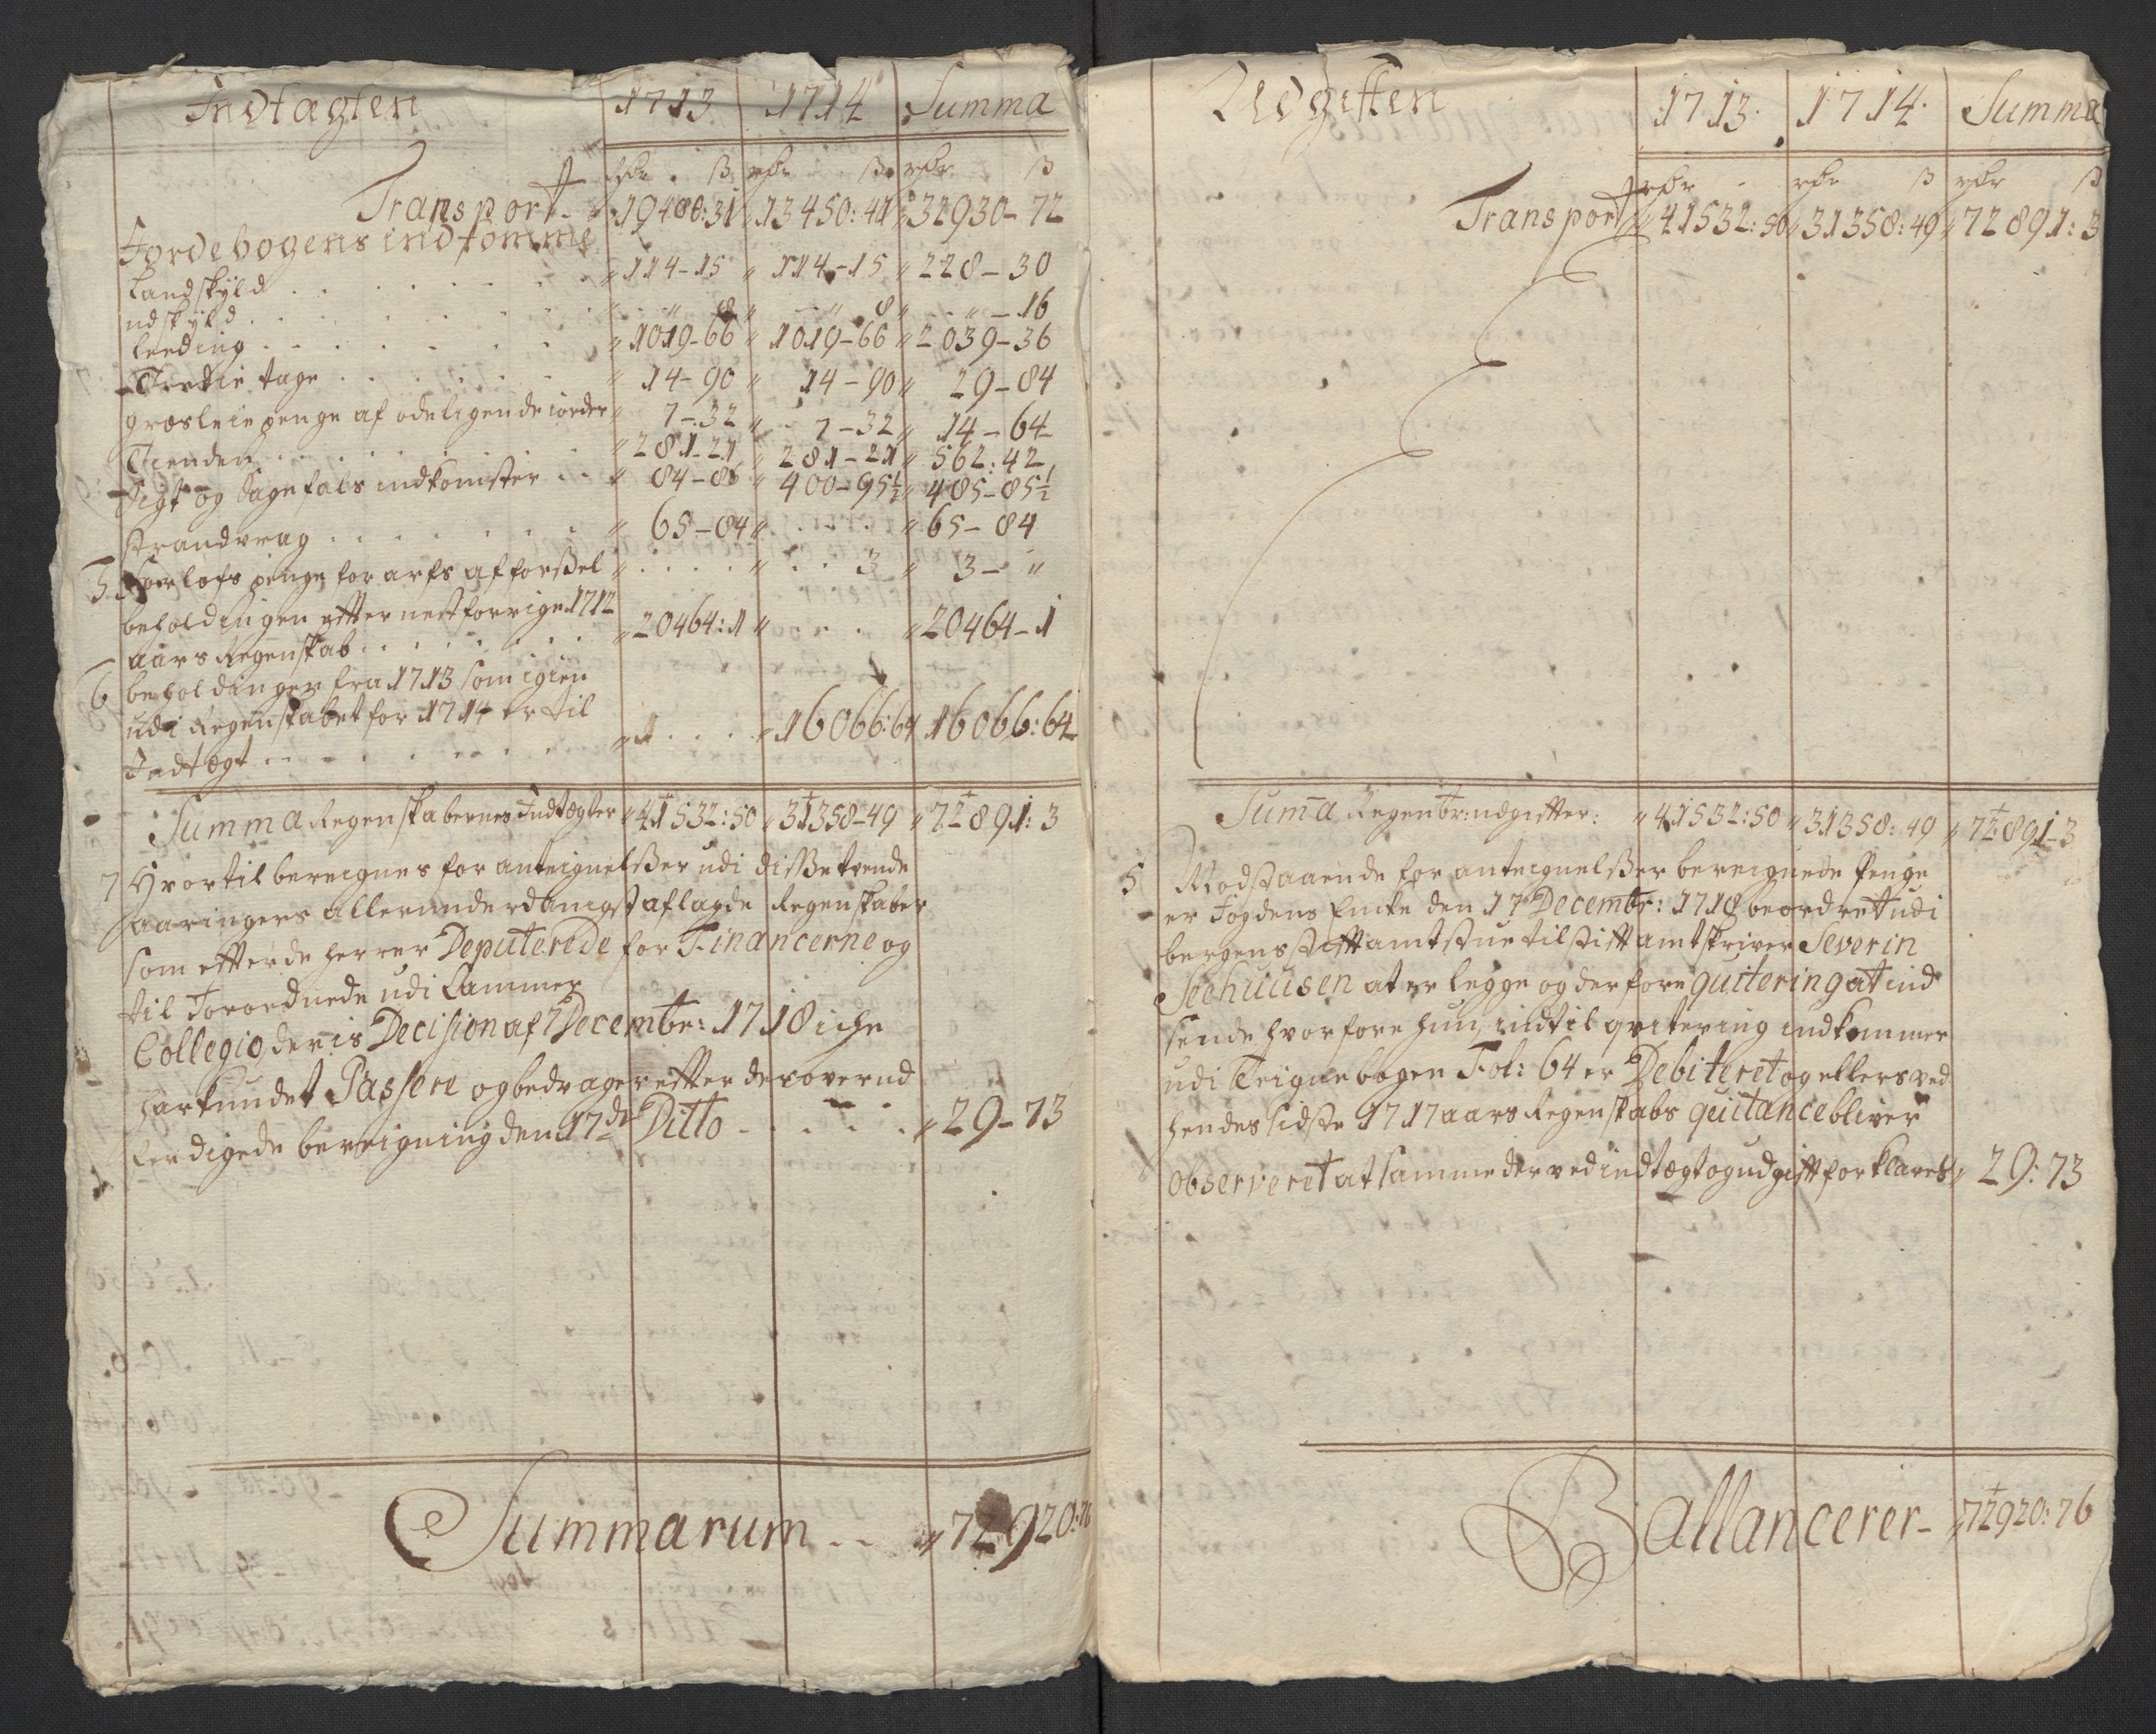 Indtægten 1713 1714 Summa
rdr ß rdr ß rdr ß
Transport „19480:31 „13450:41 „32930-72
Jordebogens indkomme
Landskyld . . . „114-15 „114-15 „228-30
udskyld . . . „ „ 8 „ „ 8 „ „-16
Leeding . . . „1019-66 „1019-66 „2039-36
Tredie tage . . . „14-90 „14-90 „29-84
græsleie penge af ödeligende iorder „7-32 „7-32 „14-64
Tienden . . . „281-21 „281-21 „562:42
Sigt og Sagefals indkomster . . „84-86 „400-95½ „485-85½
strandvrag . . . „65-84 „ . . . „65-84
5 Forlofs penge for arfs afforßel „ . . . „ . . 3 „3-„
beholdingen efter nestforrige 1712
aars Regenskab . . . „20464:1 „ . . . „20464-1
6 beholdingen fra 1713 som igien
udi Regenskabet for 1714 er til
Indtegt . . . „ . . . „16066:64 16066:64
Summa Regenskabernes Indtægter „41532:50 „31358-49 „72891:3
7 Hvortil bereignes for anteignelßer udi dißse tvende
aaringers allerunderdanigst aflagde Regenskaber
som efter de herrer Deputerede for Financerne og
til Forordnede udi Cammer
Collegio deris Decision af 7 Decembr: 1718 iche
har kundet Passere og bedrager efter der over ud
ferdigede bereigning den 17de Ditto . . . „29-73
Summarum . . „72920:76
Udgiften 1713. 1714. Summa
rdr rdr ß rdr ß
Transport „41532:50 „31358:49 „72891:3
Suma Regenbr: udgifter: „41532:50 „31358:49 „72891-3
5 Modstaaende for anteignelßer bereignede Penge
er Fogdens Enke den 17 Decembr: 1718 beordret udi
bergens stiftamtstue til stiftamtskriver Severin
Seehuusen at er legge og derfore quitering at ind
sende hvorfore hun, indtil qvitering indkommer
udi Teignebogen Fol: 64 er Debiteret og ellers ved
hendes sidste 1717 aars Regenskabs quitance bliver
observeret at samme der ved indtægt og udgift forklares „29:73
Ballancerer- „72920:76